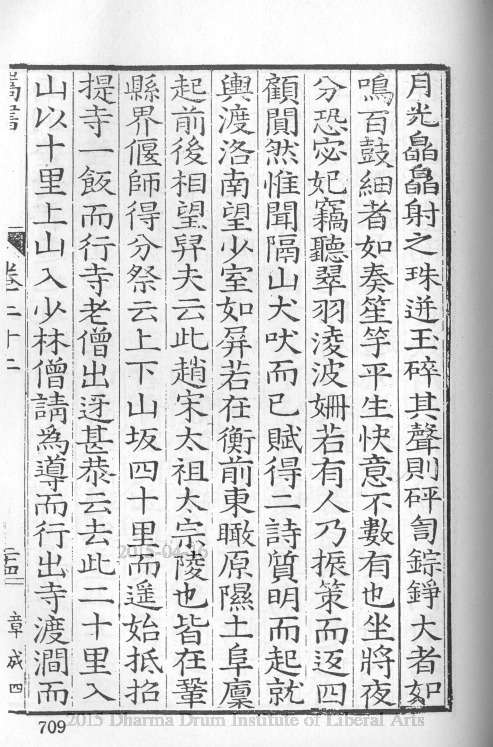 月光皛皛射之珠迸玉碎其聲則砰訇錚錚大者如
鳴百鼓細者如奏笙竽平生快意不數有也坐將夜
分恐宓妃竊聽翠羽淩波姍若有人乃振策而返四
顧闃然惟聞隔山犬吠而已賦得二詩質明而起就
輿渡洛南望少室如屏若在衡前東瞰原隰土阜廩
起前後相望舁夫云此趙宋太祖太宗陵也皆在鞏
縣界偃師得分祭云上下山坂四十里而遥始抵招
提寺一飯而行寺老僧出迓甚恭云去此二十里入
山以十里上山入少林僧請為導而行出寺渡澗而
卷二十二
章成四
709
2015-04-16
2015 Dharma Drum Institute of Liberal Arts